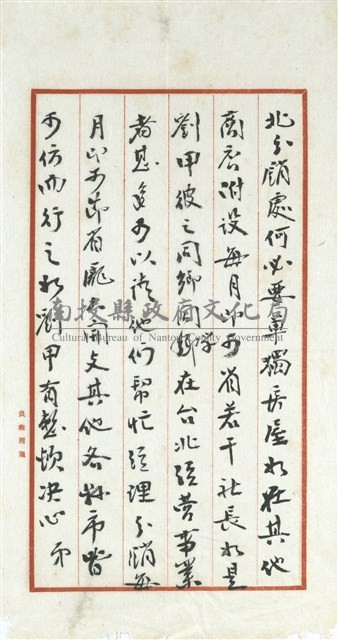 北分銷處何必要單獨房屋如在其他
商店附設每月即可省若干社長如是
劉甲彼之同鄉同學在台北經營事業
者甚多可以請他們幫忙經理分銷每
月即可節省龐大開支其他各縣市皆
可仿而行之如劉甲有整頓決心
南投縣政府文化局
Cultural Bureau of Nantou County Government